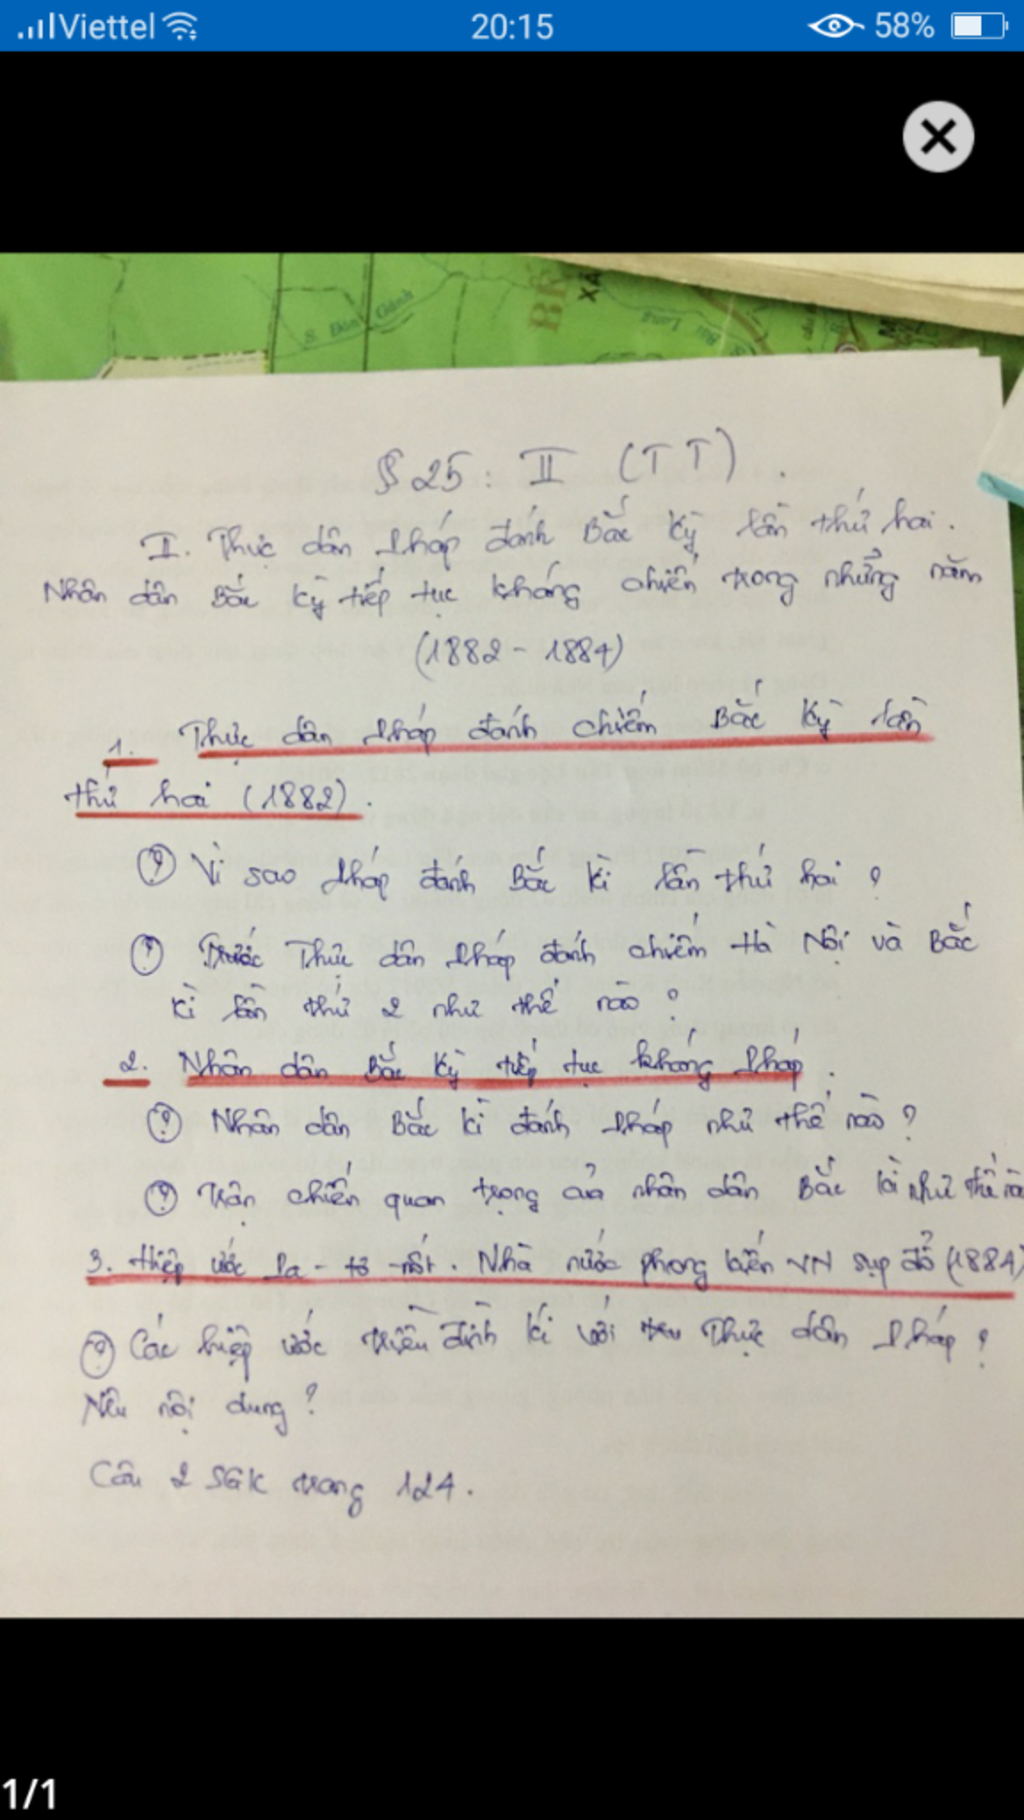 Viettel 20:15 58%
S. Bôn Gánh
§ 25: II (TT).
II. Thực dân Pháp đánh Bắc Kỳ lần thứ hai.
Nhân dân Bắc Kỳ tiếp tục kháng chiến trong những năm
(1882 - 1884)
1. Thực dân Pháp đánh chiếm Bắc Kỳ lần
thứ hai (1882).
? Vì sao Pháp đánh Bắc Kì lần thứ hai?
? Thực dân Pháp đánh chiếm Hà Nội và Bắc
Kì lần thứ 2 như thế nào?
2. Nhân dân Bắc Kỳ tiếp tục kháng Pháp.
? Nhân dân Bắc Kì đánh Pháp như thế nào?
? Trận chiến quan trọng của nhân dân Bắc là như thế
3. Hiệp ước Pa-tơ-nốt. Nhà nước phong kiến VN sụp đổ (1884)
? Các hiệp ước triều đình kí với Thực dân Pháp?
Nêu nội dung?
Câu 2 SGK trang 124.
1/1